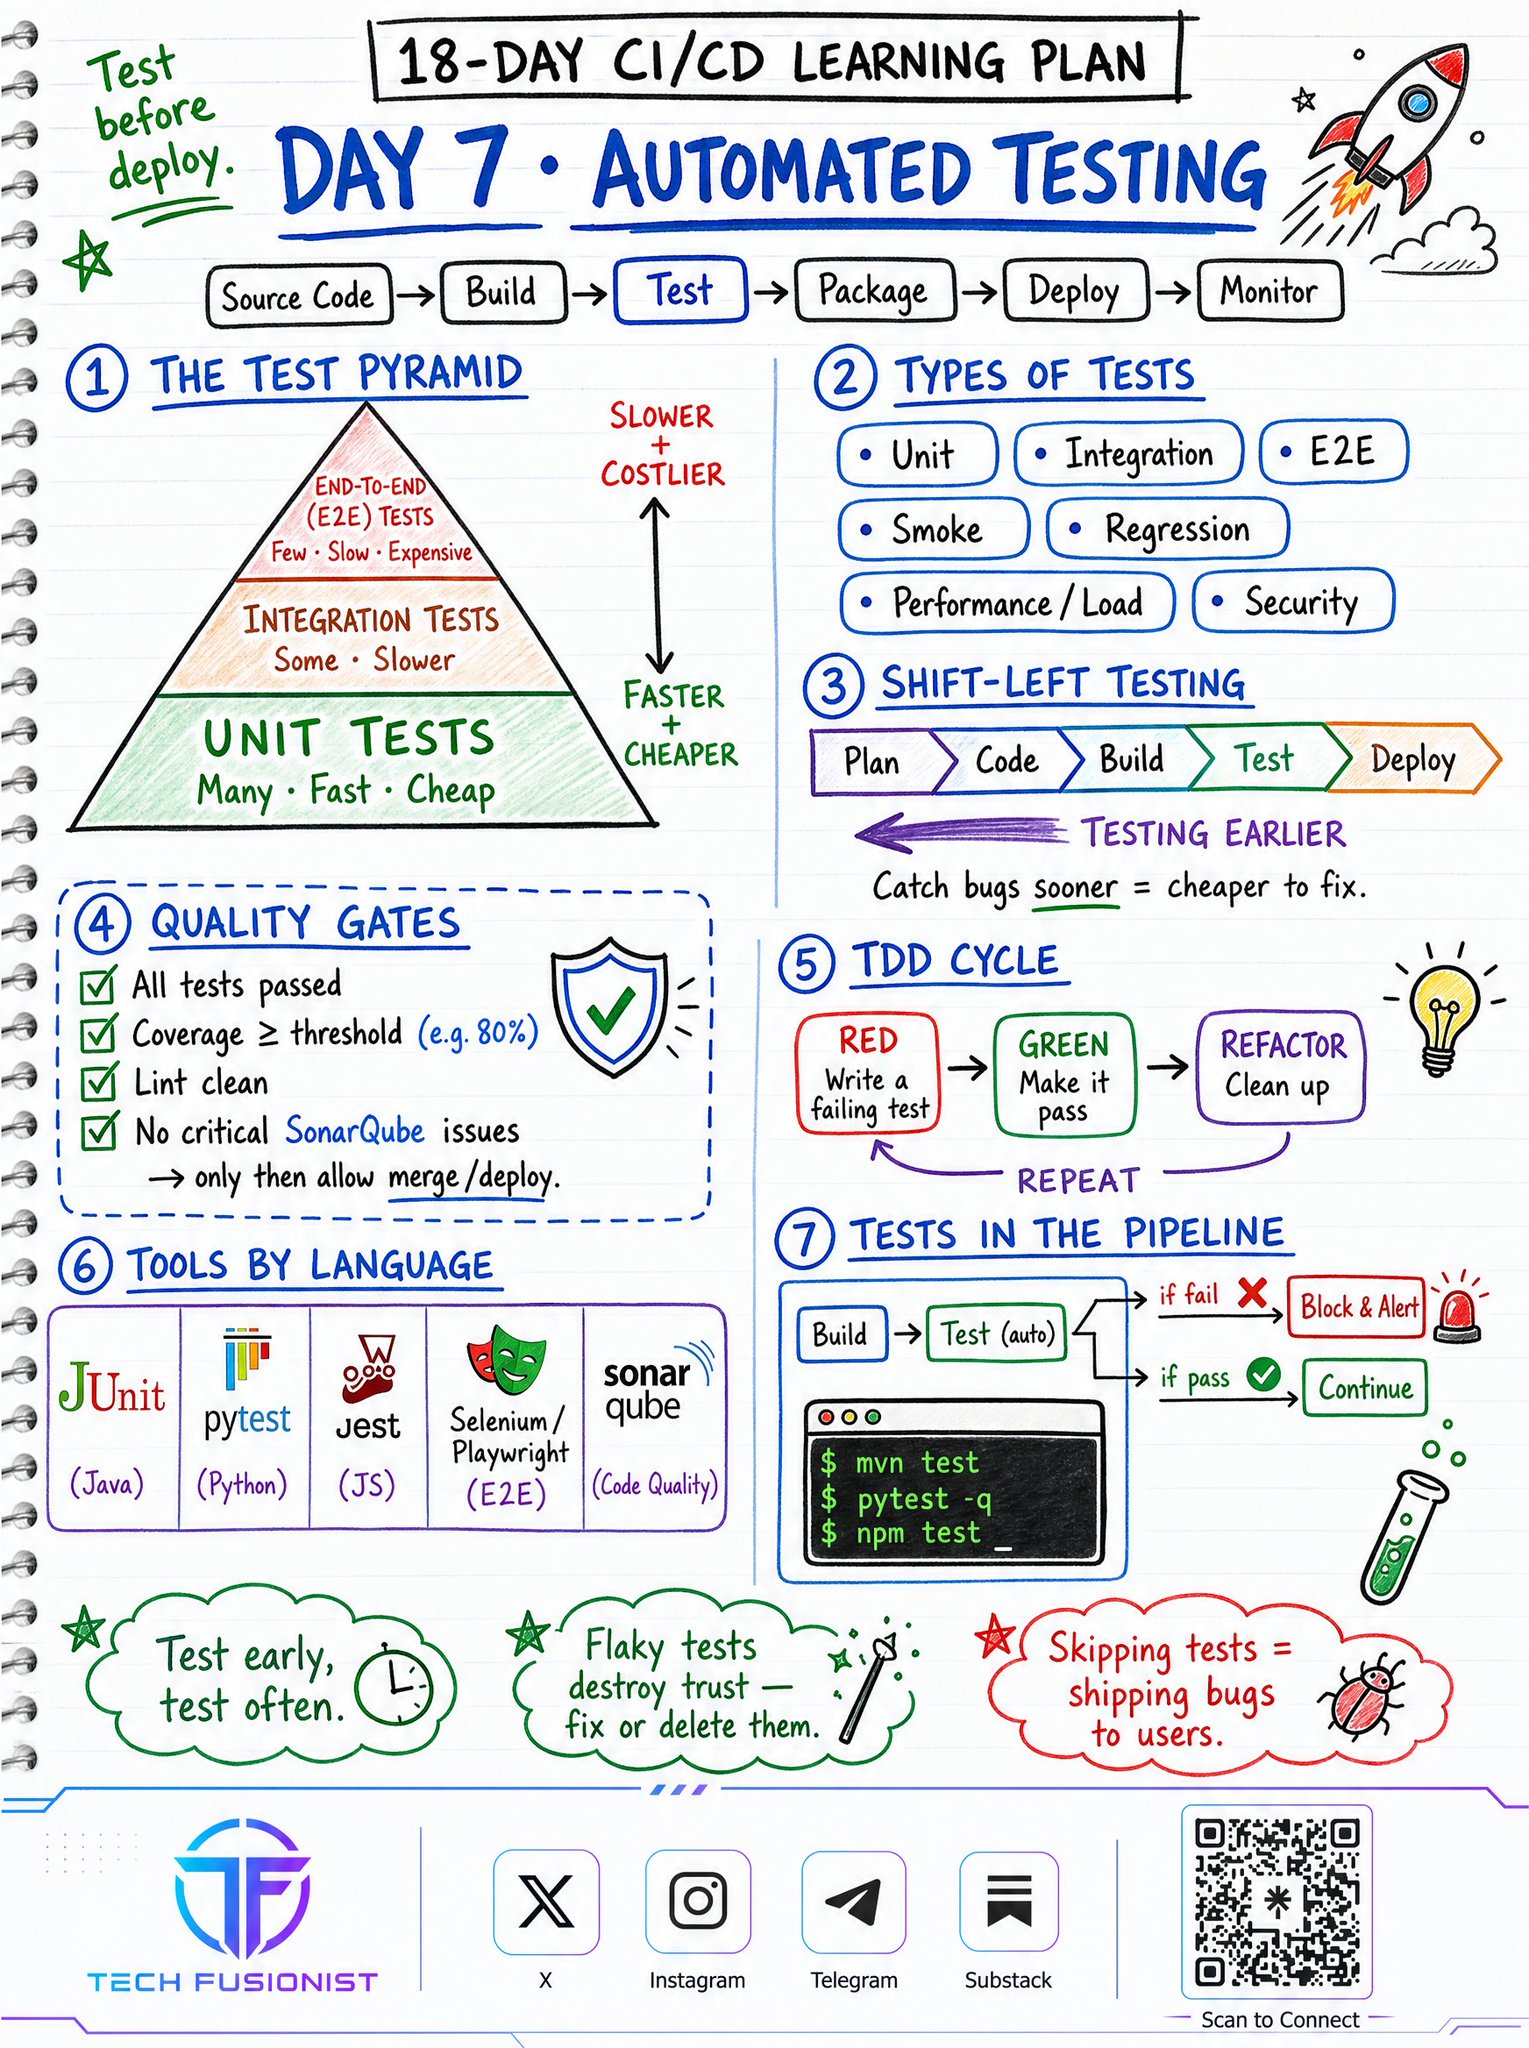 18-DAY CI/CD LEARNING PLAN
Test
before
deploy.
DAY 7 · AUTOMATED TESTING
Source Code → Build → Test → Package → Deploy → Monitor
1 THE TEST PYRAMID
END-TO-END
(E2E) TESTS
Few · Slow · Expensive
INTEGRATION TESTS
Some · Slower
UNIT TESTS
Many · Fast · Cheap
SLOWER
+
COSTLIER
FASTER
+
CHEAPER
2 TYPES OF TESTS
• Unit • Integration • E2E
• Smoke • Regression
• Performance / Load • Security
3 SHIFT-LEFT TESTING
Plan Code Build Test Deploy
TESTING EARLIER
Catch bugs sooner = cheaper to fix.
4 QUALITY GATES
All tests passed
Coverage ≥ threshold (e.g. 80%)
Lint clean
No critical SonarQube issues
→ only then allow merge/deploy.
5 TDD CYCLE
RED
Write a
failing test
GREEN
Make it
pass
REFACTOR
Clean up
REPEAT
6 TOOLS BY LANGUAGE
JUnit
(Java)
pytest
(Python)
Jest
(JS)
Selenium /
Playwright
(E2E)
sonar
qube
(Code Quality)
7 TESTS IN THE PIPELINE
Build → Test (auto)
if fail Block & Alert
if pass Continue
$ mvn test
$ pytest -q
$ npm test _
Test early,
test often.
Flaky tests
destroy trust —
fix or delete them.
Skipping tests =
shipping bugs
to users.
TF
TECH FUSIONIST
X
Instagram
Telegram
Substack
Scan to Connect